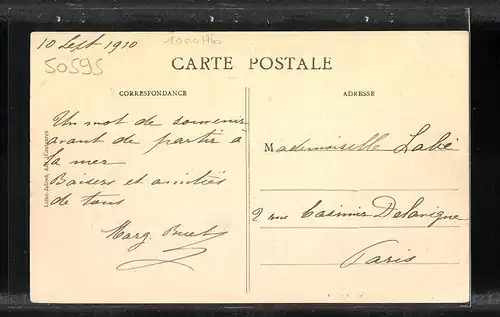 10 Sept 1910
50595
CARTE POSTALE
CORRESPONDANCE
ADRESSE
Un mot de souvenir
avant de partir à
la mer
Baisers et amitiés
de tous
Marg. Buet
Mademoiselle Labé
2 rue Casimir Delavigne
Paris